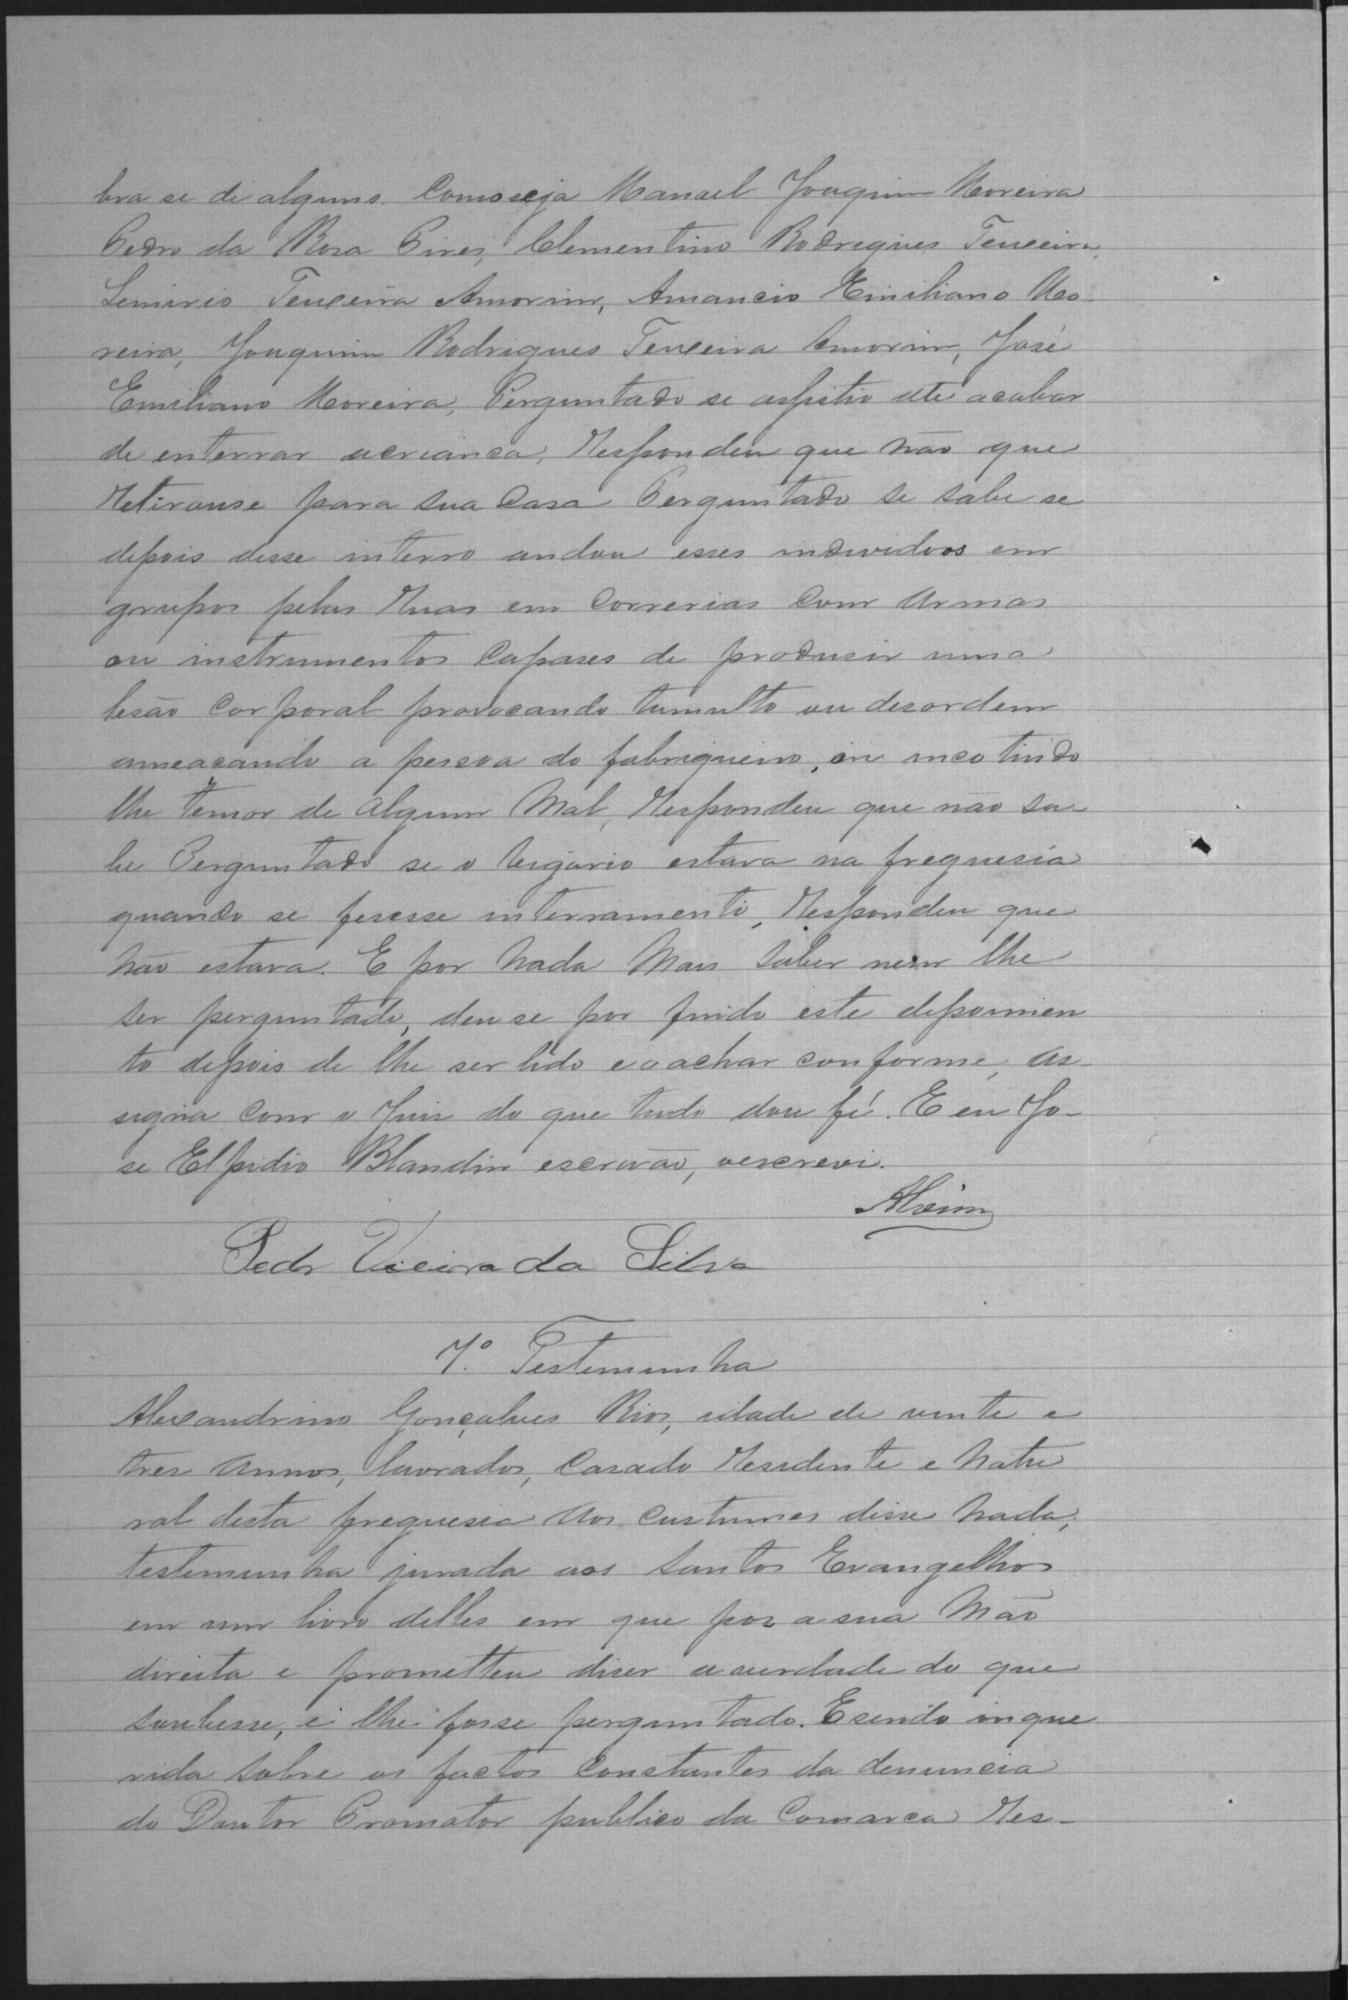 bra se de alguns. Como seja Manoel Joaquim Moreira
Pedro da Rosa Pires, Clementino Rodrigues Teixeira,
Senirio Teixeira Amorim, Amancio Emiliano Mo-
reira, Joaquim Rodrigues Teixeira Amorim, José
Emiliano Moreira, Perguntado se aspistio ate acabar
de enterrar acrianca, Respondeu que não que
Retirouse para sua Casa Perguntado se sabe se
depois desse interro andou esses individuos em
grupos pelas Ruas em Correrias Com Armas
ou instrumentos Capases de produsir uma
lesão Corporal provocando tumulto ou desordem
ameacando a pessoa do fabriqueiro, ou incotindo
lhe temor de algum Mal, Respondeu que não sa-
be Perguntado se o Vigario estava na freguesia
quando se fesesse interramento, Respondeu que
não estava. E por Nada Mais Saber nem lhe
ser perguntado, deuse por findo este depoimen
to depois de lhe ser lido e o achar conforme, as-
signa com o Juiz do que tudo dou fé. E eu Jo-
se Elpidio Blandin escrivão, oescrevi.
Alvim
Pedr Vieira da Silva
7º. Testemunha
Alexandrino Gonçalves Rios, idade de vinte e
tres Annos, lavrador, Casado Residente e Natu
ral desta freguesia Aos Custumes disse Nada,
testemunha jurada aos Santos Evangelhos
em um livro delles em que poz a sua Mão
direita e prometteu diser a verdade do que
soubesse, e lhe fosse perguntado. E sendo inque
rida sobre os factos Constantes da denuncia
do Doutor Promotor publico da Comarca Res-